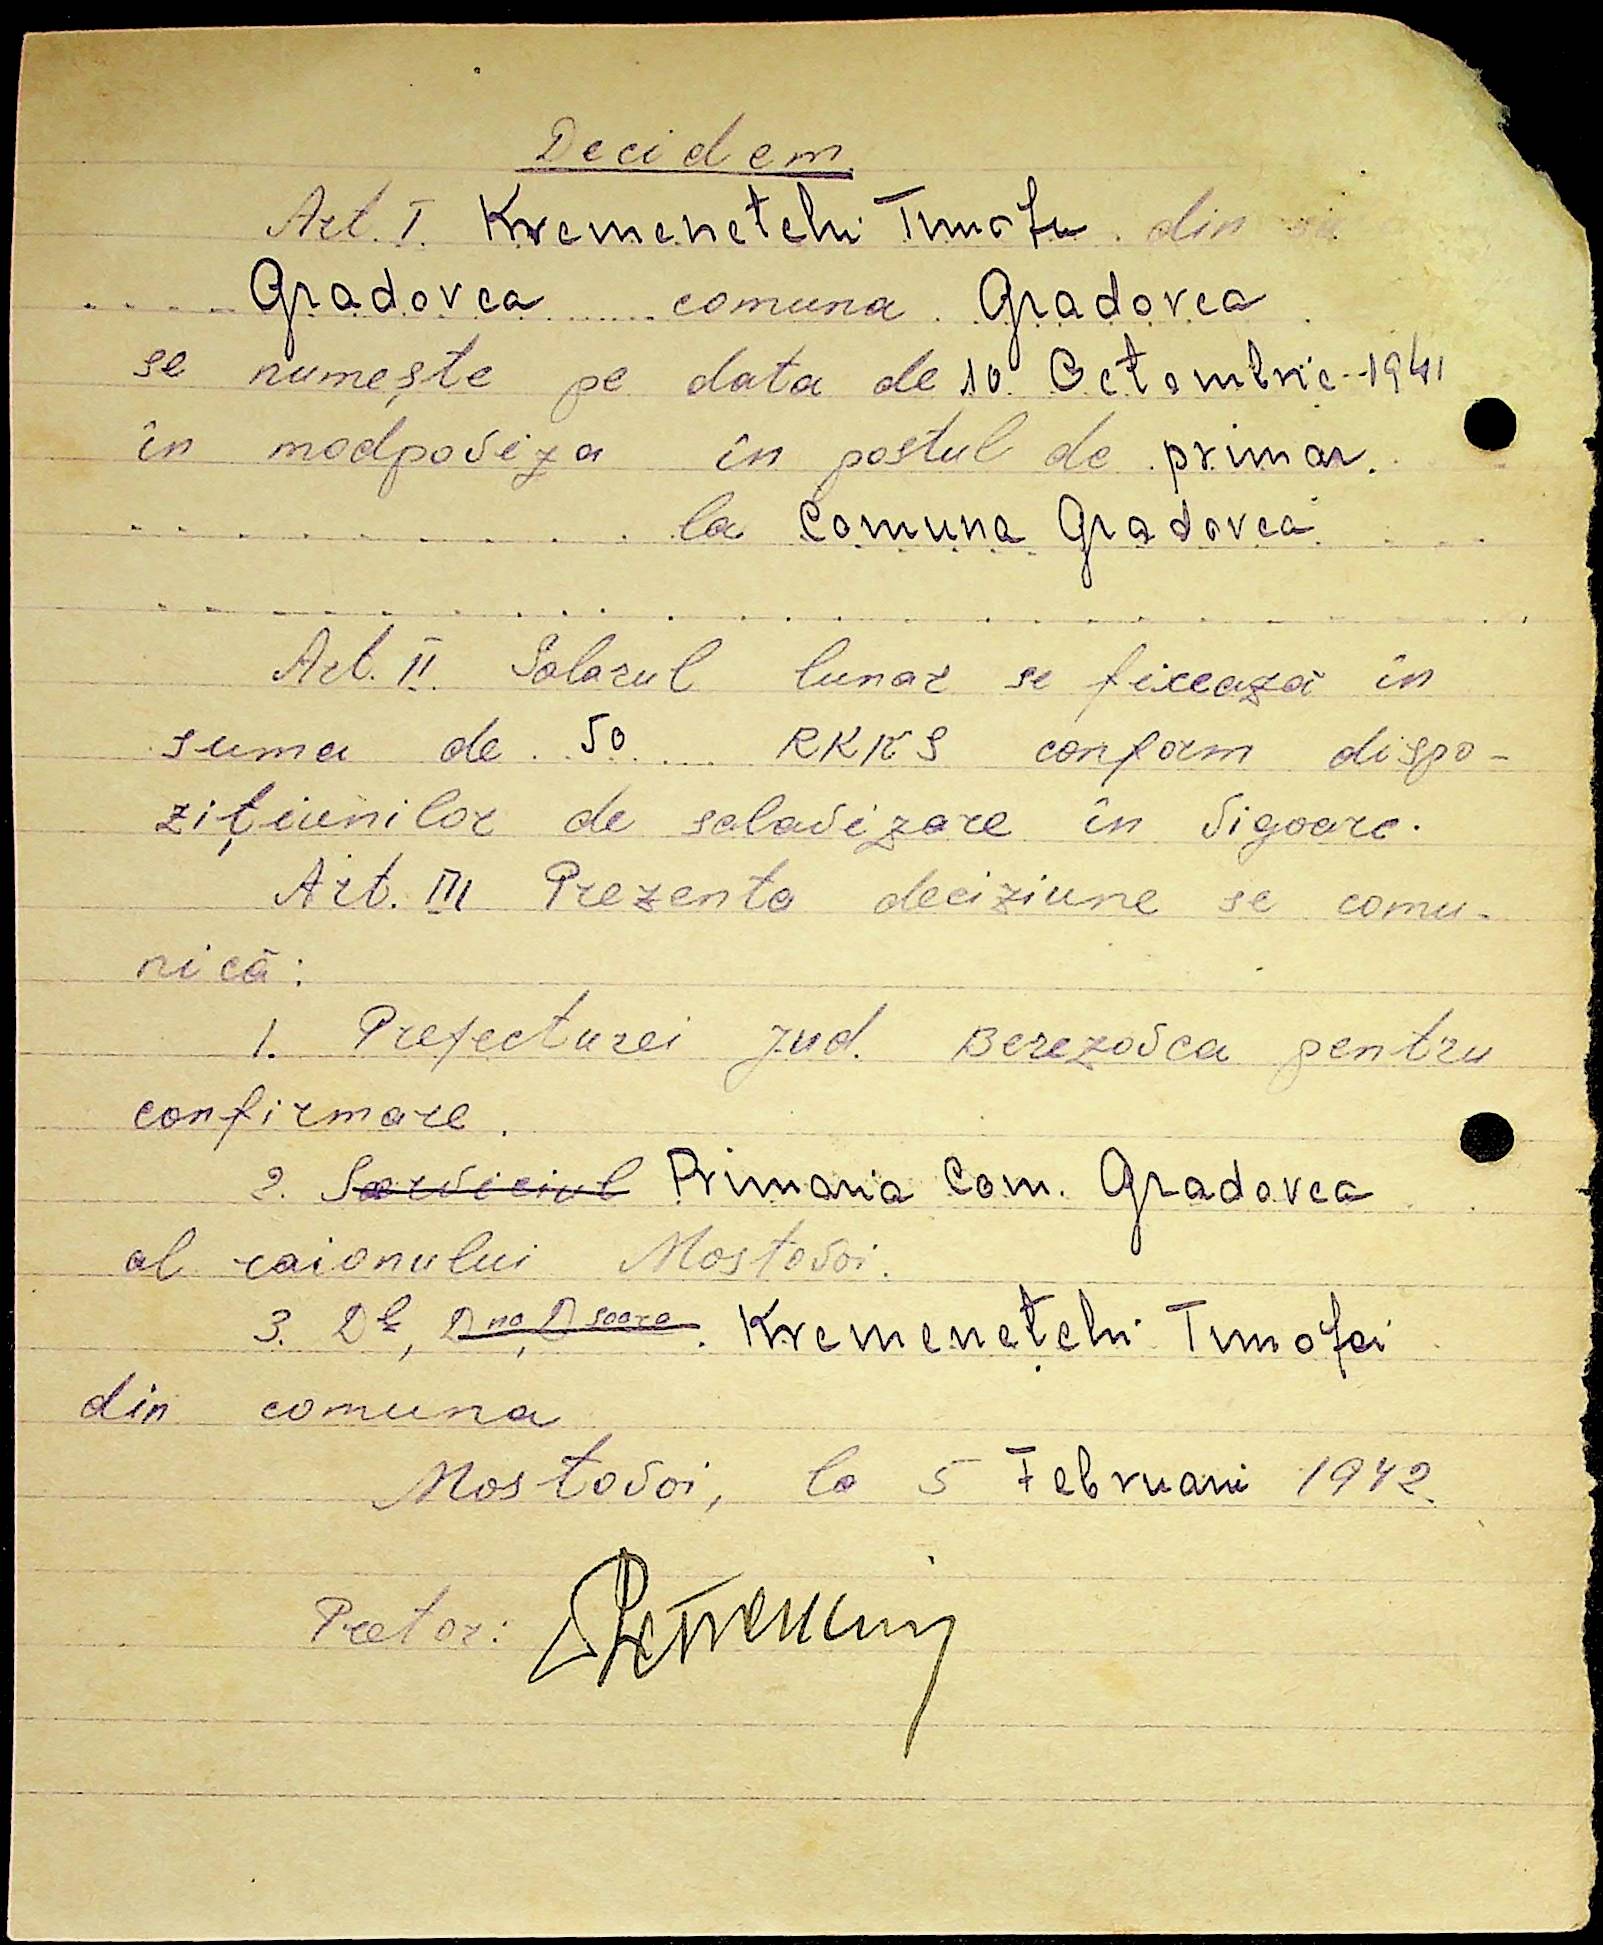 Decidem
Art. I. Kremenetchi Timofei din
.... Gradovca ...... comuna . Gradovca .
se numește pe data de 10 Octombrie 1941
în mod poviza în postul de primar.
. . . . . . . . . . . la Comuna Gradovca . . . .
. . . . . . . . . . . . . . . . . . . . . . . . . . .
Art. II. Salarul lunar se fixează în
suma de . 50 .... RKKS conform dispo-
zițiunilor de salavizare în vigoare.
Art. III Prezenta deciziune se comu-
nică:
1. Prefecturei Jud. Berezovca pentru
confirmare.
2. Serviciul Primaria Com. Gradovca
al raionului Mostovoi.
3. Dl, Dna, Dsoara. Kremenețchi Timofei
din comuna
Mostovoi, la 5 Februari 1942.
Pretor: